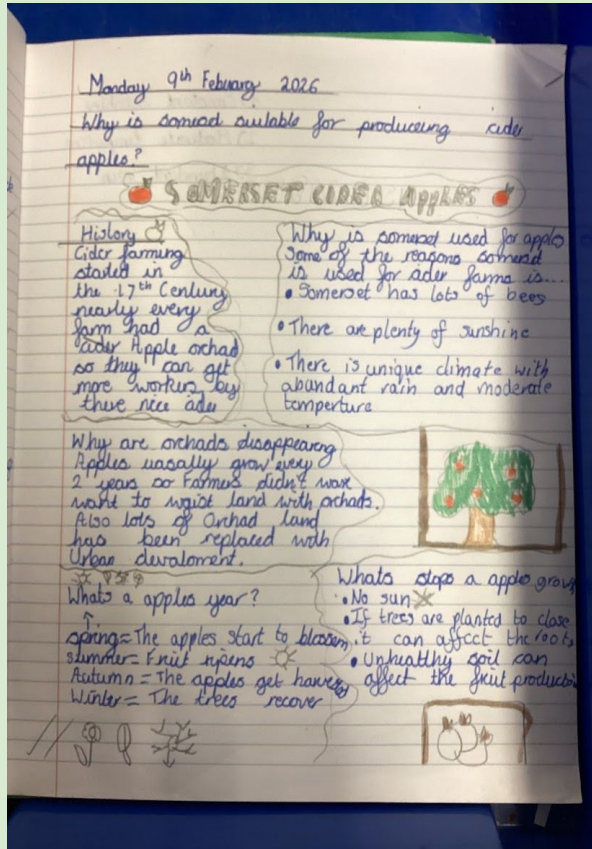 Monday 9th Febuary 2026
Why is somerset suitable for produceing cider
apples?
SOMERSET CIDER APPLES
History
Cider farming
started in
the 17th Century
nearly every
farm had a
cider Apple orchad
so they can get
more workers by
there nice cider
Why is somerset used for apples
Some of the reasons somerset
is used for cider farms is...
• Somerset has lots of bees
• There are plenty of sunshine
• There is unique climate with
abundant rain and moderate
temperture
Why are orchads disappearing
Apples uasally grow every
2 years so Farmers didn't
want to waist land with orchads.
Also lots of Orchad land
has been replaced with
Urban devaloment.
Whats a apples year?
spring = The apples start to blossom
summer = Fruit ripens
Autumn = The apples get harvested
Winter = The trees recover
Whats stops a apple grow
• No sun
• If trees are planted to close
it can affect the roots
• Unhealthy soil can
affect the fruit production